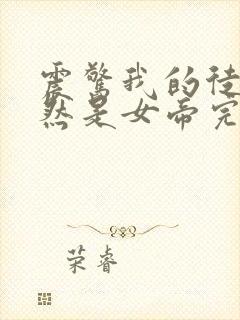 震惊我的徒
然是女帝完
荣睿